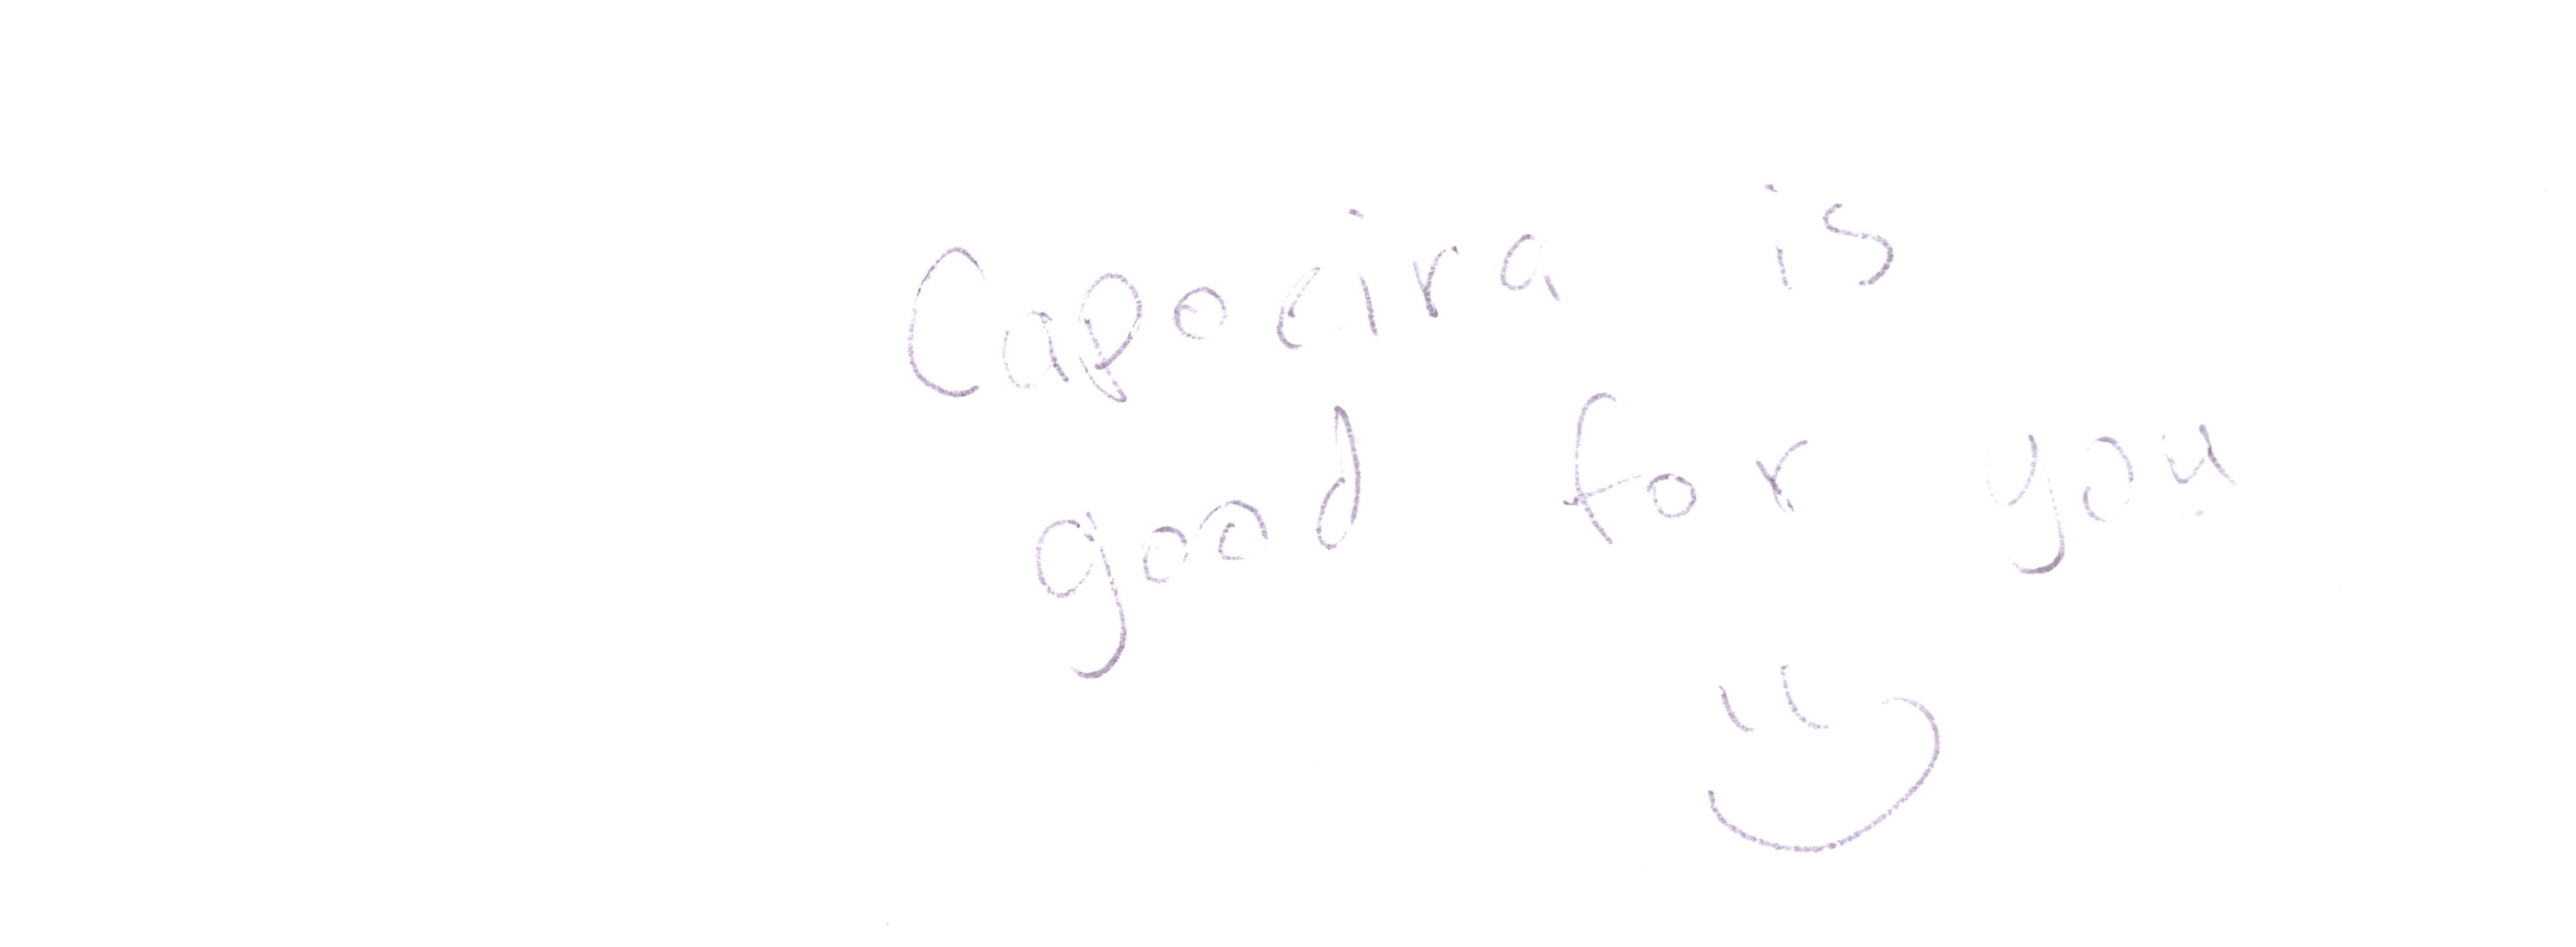 Capoeira is
good for you